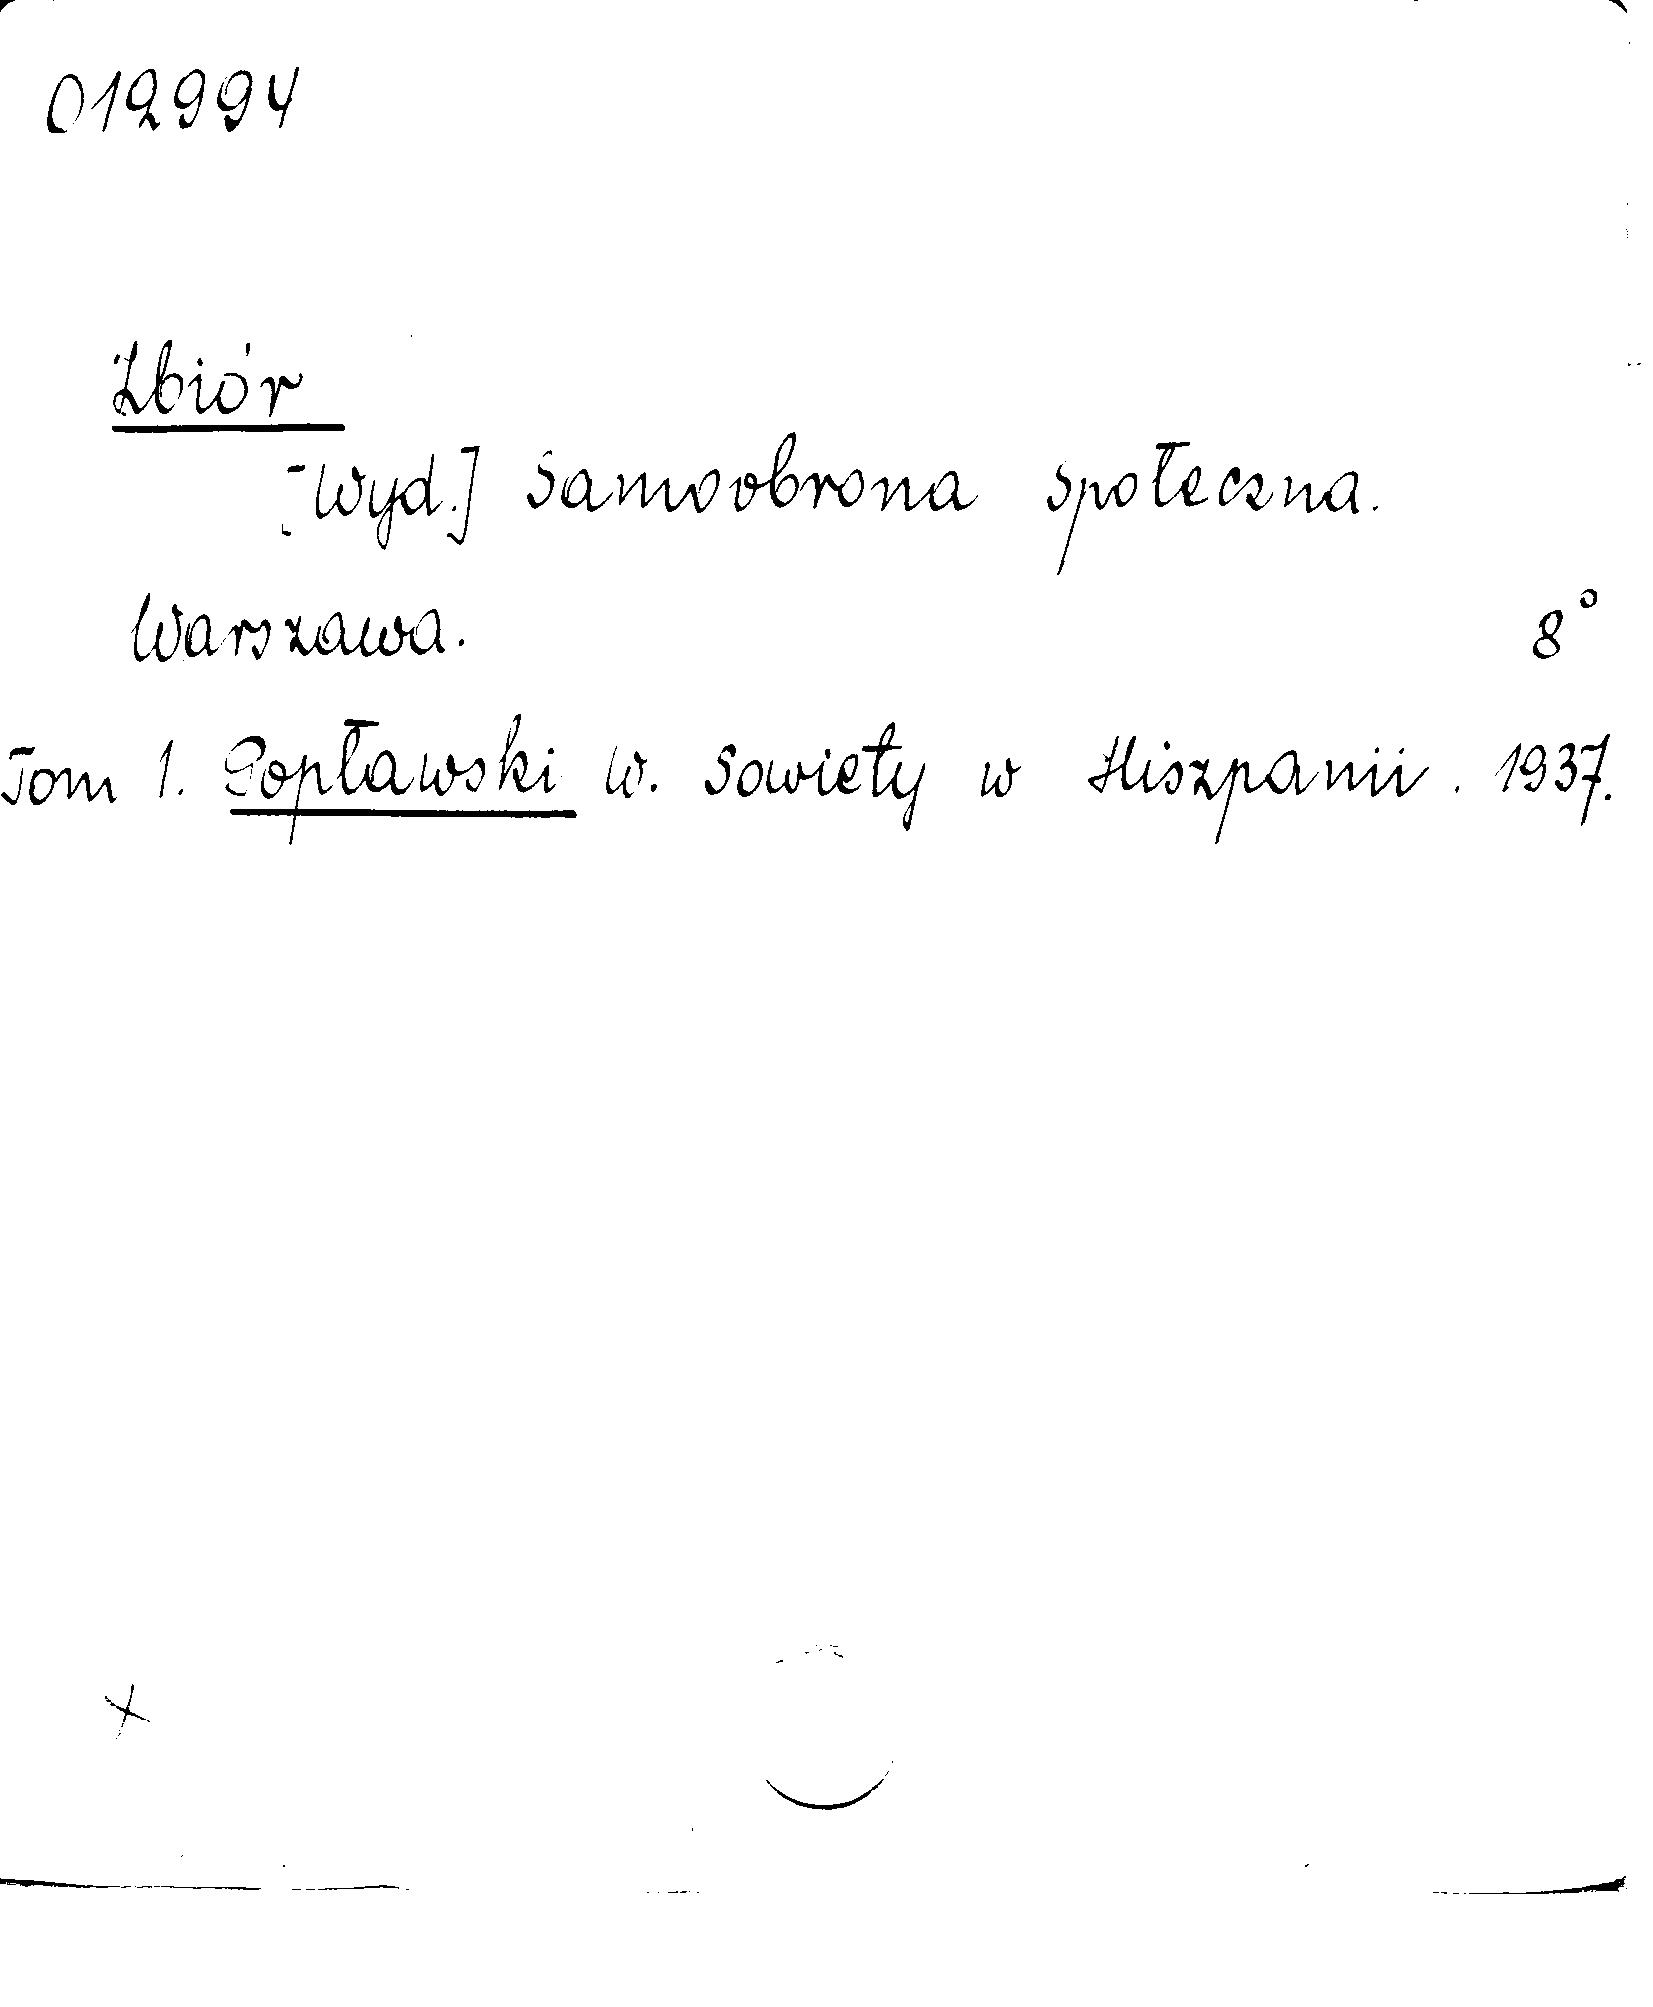 012994
Zbiór
[Wyd.] Samoobrona społeczna.
Warszawa. 8°
Tom 1. Popławski W. Sowiety w Hiszpanii. 1937.